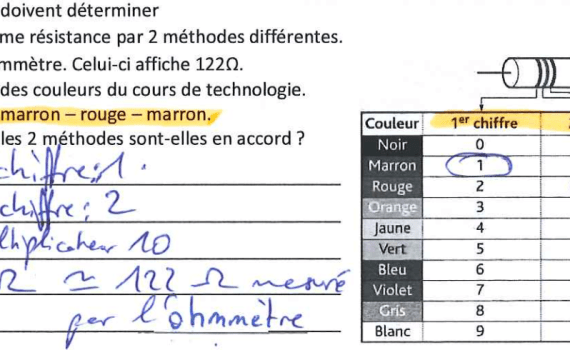 doivent déterminer
me résistance par 2 méthodes différentes.
mmètre. Celui-ci affiche 122Ω.
des couleurs du cours de technologie.
marron – rouge – marron.
les 2 méthodes sont-elles en accord ?
chiffre: 1.
chiffre: 2
ltiplicateur 10
Ω ≃ 122 Ω mesuré
par l'ohmmètre
Couleur 1er chiffre 2
Noir 0
Marron 1
Rouge 2
Orange 3
Jaune 4
Vert 5
Bleu 6
Violet 7
Gris 8
Blanc 9